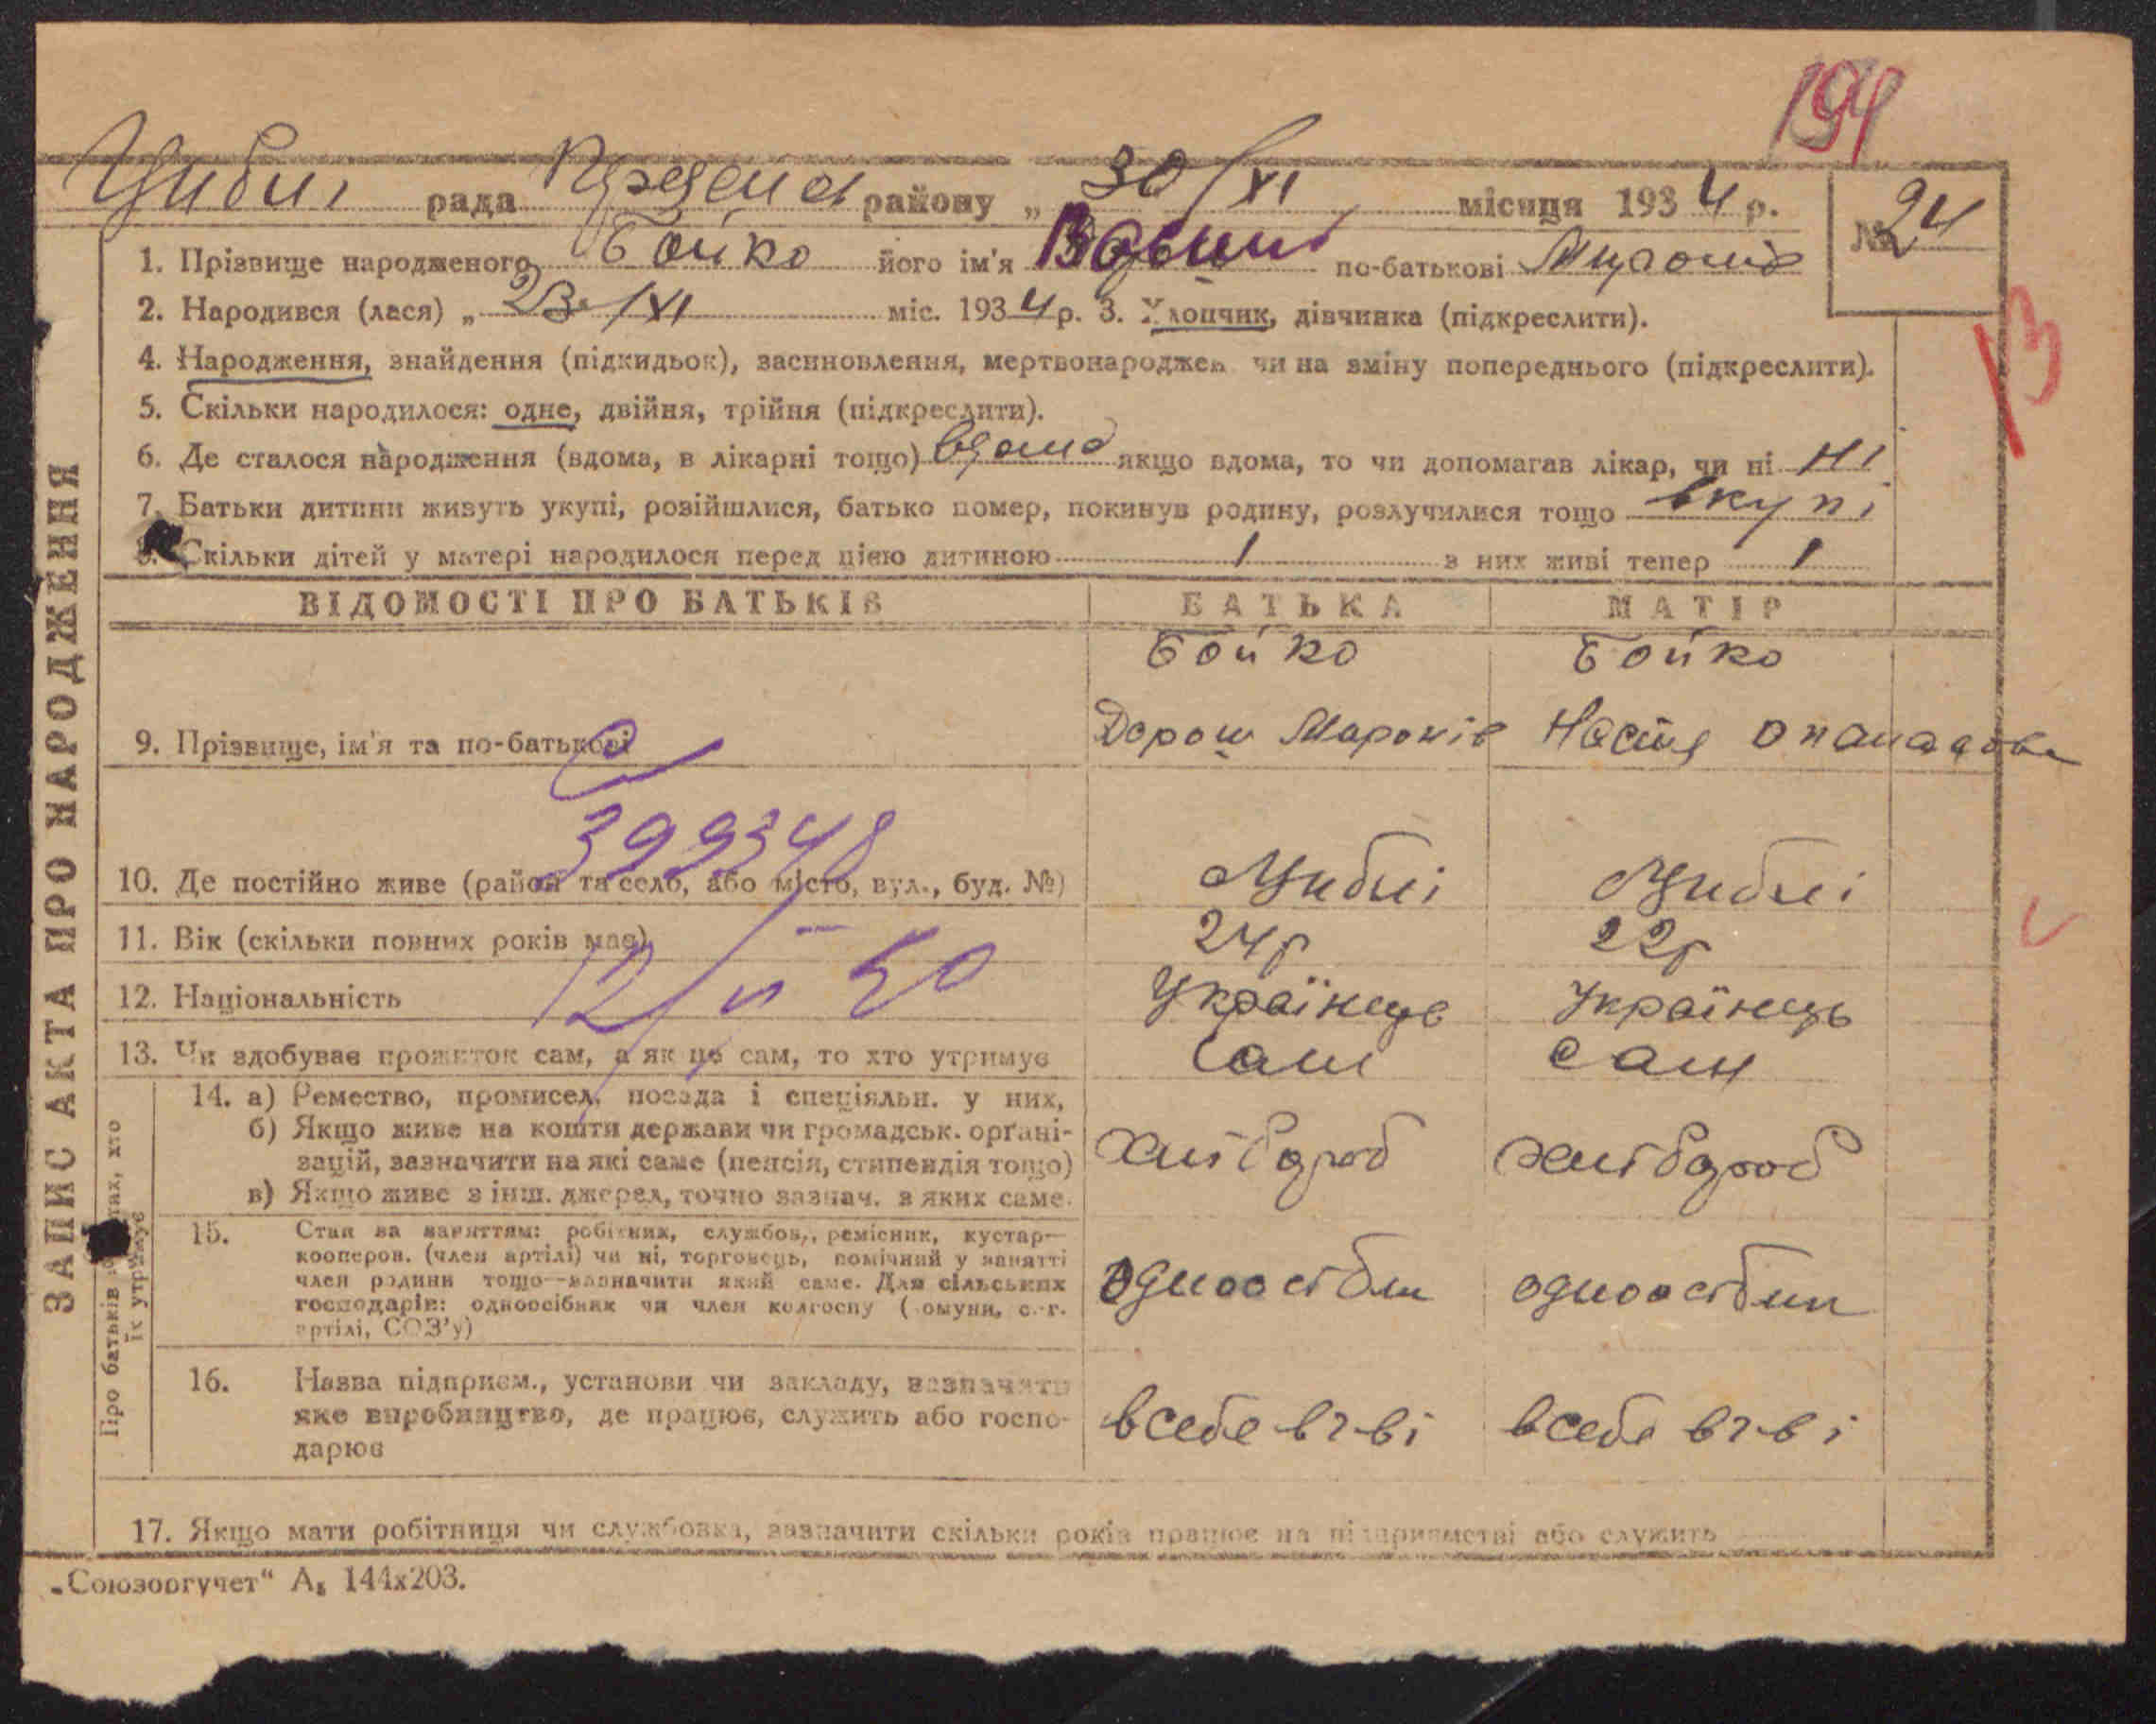 194
Цибли рада району „ 30/XI місяця 1934 р.
№ 24
1. Прізвище народженого Бойко його ім'я по-батькові
2. Народився (лася) „ 23/XI міс. 1934 р. 3. Хлопчик, дівчинка (підкреслити).
13
4. Народження, знайдення (підкидьок), засиновлення, мертвонароджен. чи на зміну попереднього (підкреслити).
5. Скільки народилося: одне, двійня, трійня (підкреслити).
6. Де сталося народження (вдома, в лікарні тощо) вдома якщо вдома, то чи допомагав лікар, чи ні ні
7. Батьки дитини живуть укупі, розійшлися, батько помер, покинув родину, розлучилися тощо вкупі
8. Скільки дітей у матері народилося перед цією дитиною 1 з них живі тепер 1
ЗАПИС АКТА ПРО НАРОДЖЕННЯ
ВІДОМОСТІ ПРО БАТЬКІВ БАТЬКА МАТІР
Бойко Бойко
9. Прізвище, ім'я та по-батькові Дорош Маркові Настя Опанасова
399348
10. Де постійно живе (район та село, або місто, вул., буд. №) Циблі Циблі
11. Вік (скільки повних років має) 24р 22р
12/VI 50
12. Національність Українець Українець
13. Чи здобуває прожиток сам, а як не сам, то хто утримує Сам Сам
Про батьків чи тих, хто їх утримує
14. а) Ремество, промисел, посада і спеціяльн. у них,
б) Якщо живе на кошти держави чи громадськ. орґані-
зацій, зазначити на які саме (пенсія, стипендія тощо) хлібороб хлібороб
в) Якщо живе з інш. джерел, точно зазнач. з яких саме.
15. Стан за заняттям: робітник, службов., ремісник, кустар—
кооперов. (член артілі) чи ні, торговець, помічний у занятті
член родини тощо—зазначити який саме. Для сільських
господарів: одноосібник чи член колгоспу (комуни, с.-г. одноосібн одноосібник
артілі, СОЗ'у)
16. Назва підприєм., установи чи закладу, зазначити
яке виробництво, де працює, служить або госпо- в себе в г-ві в себе в г-ві
дарює
17. Якщо мати робітниця чи службовка, зазначити скільки років працює на підприємстві або служить
„Союзоргучет“ А₅ 144х203.